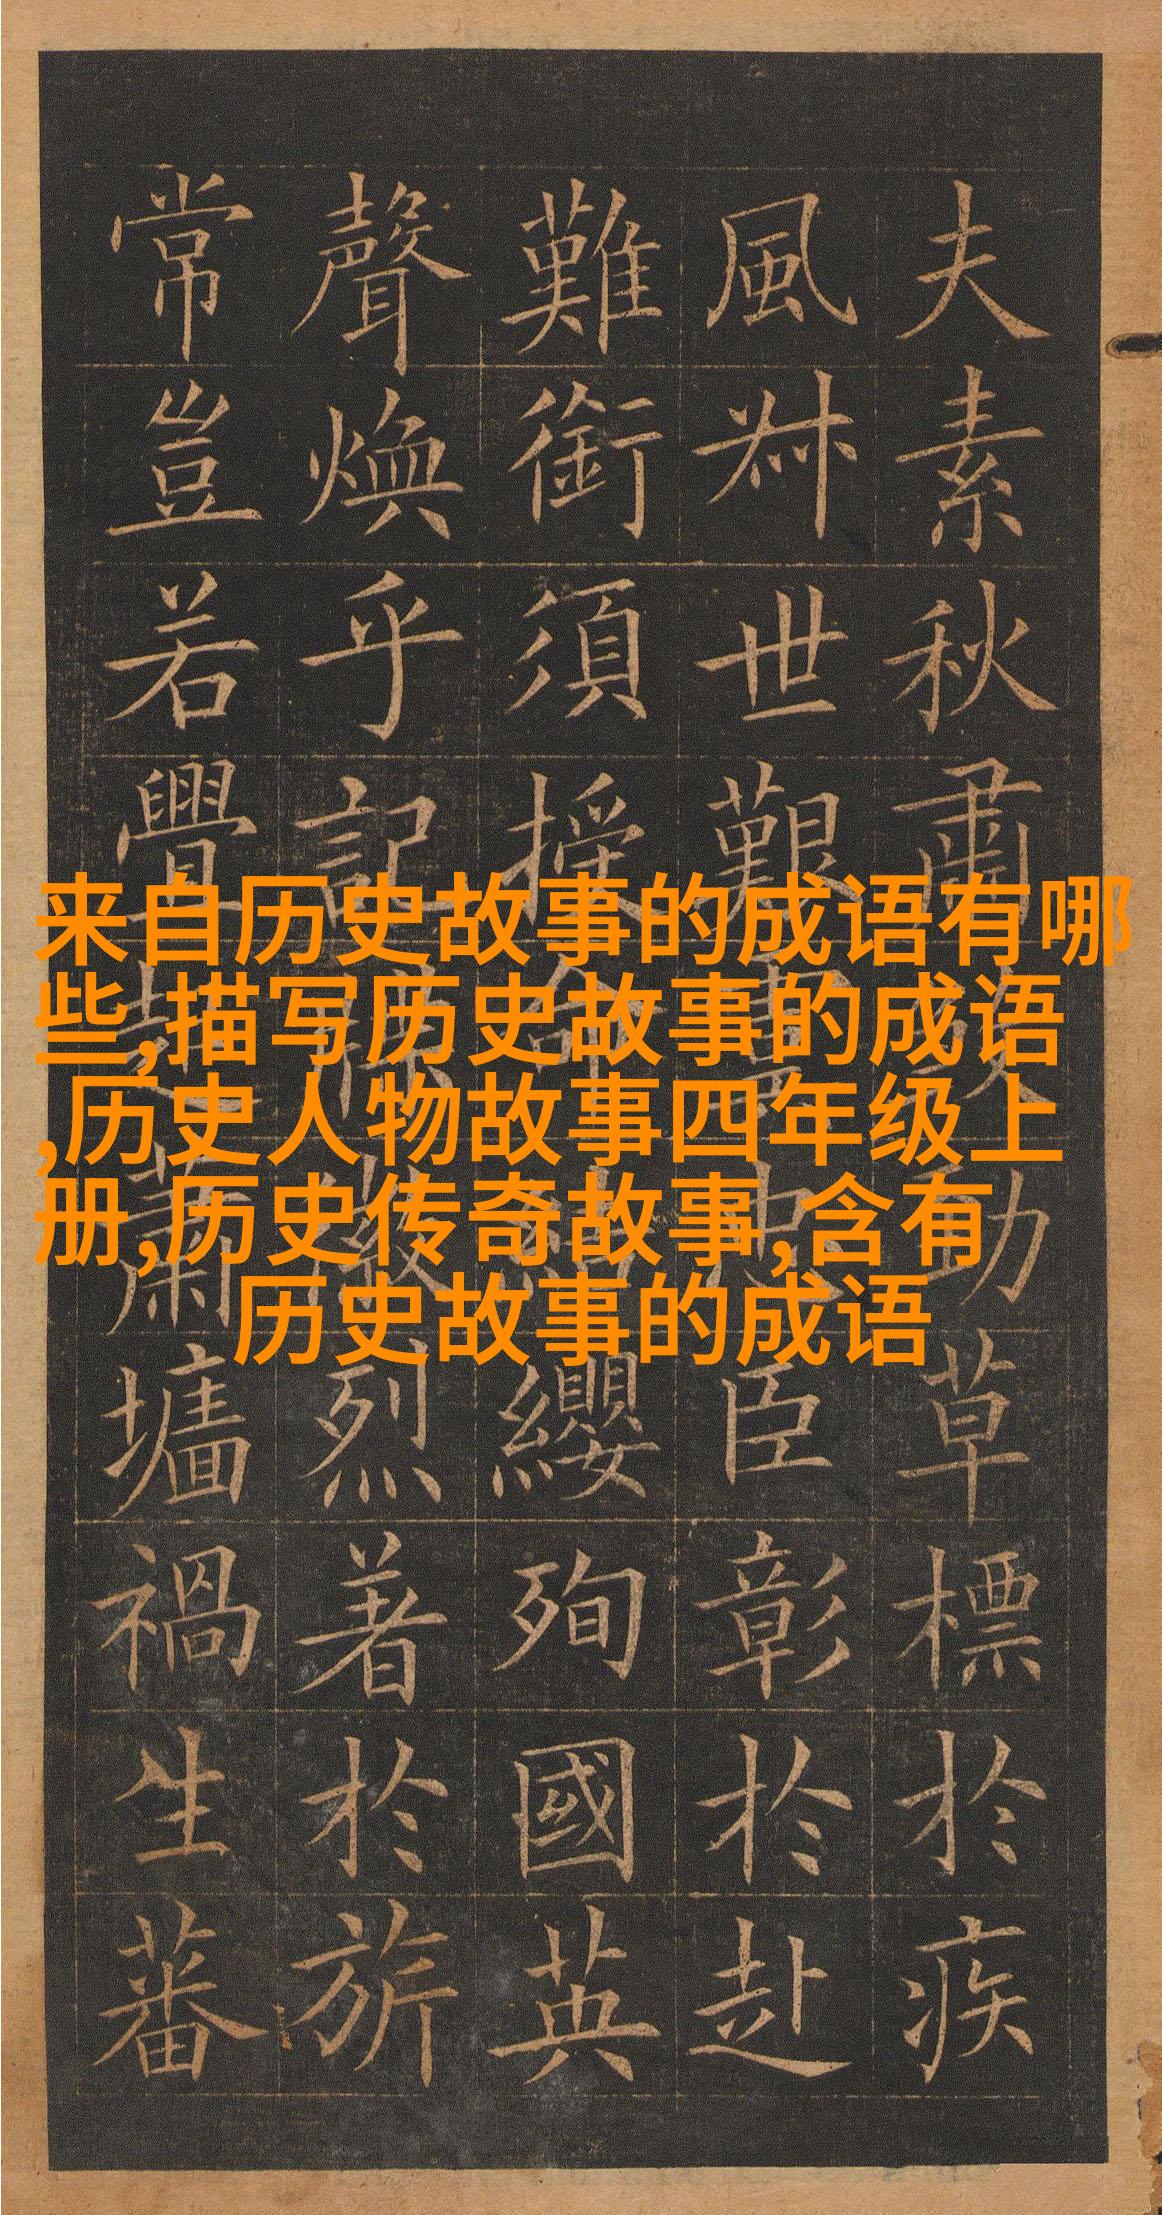 来自历史故事的成语有哪
些,描写历史故事的成语
,历史人物故事四年级上
册,历史传奇故事,含有
历史故事的成语
夫素秋肅勁草標於疾
風叔世艱臣彰於赴
難銜須授纓殉國英
聲煥乎記烈著於旂
常豈若舋蕭墻禍生蕃